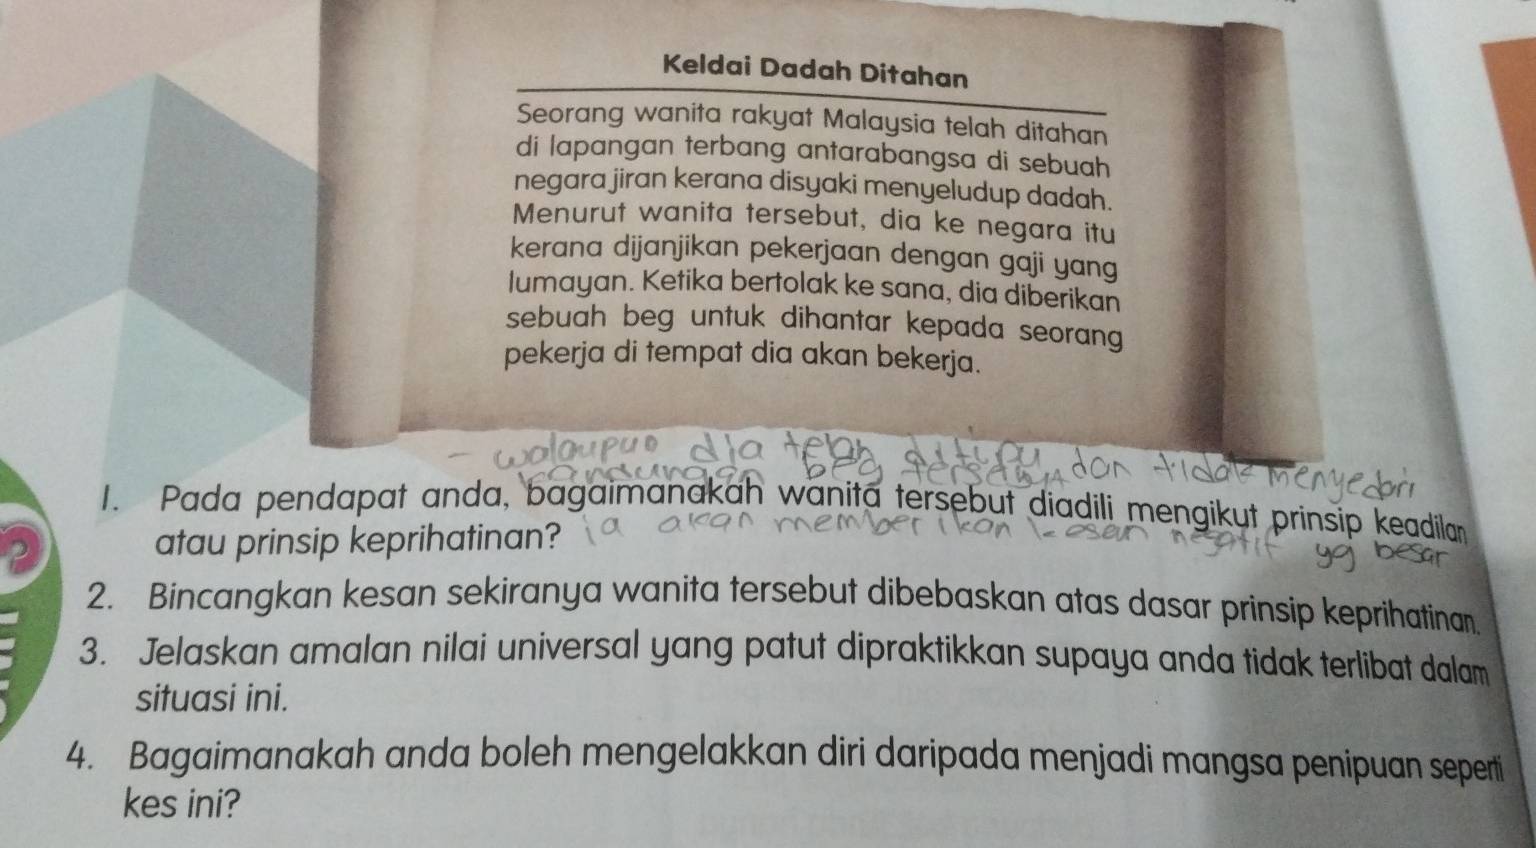 Keldai Dadah Ditahan
Seorang wanita rakyat Malaysia telah ditahan
di lapangan terbang antarabangsa di sebuah
negara jiran kerana disyaki menyeludup dadah.
Menurut wanita tersebut, dia ke negara itu
kerana dijanjikan pekerjaan dengan gaji yang
lumayan. Ketika bertolak ke sana, dia diberikan
sebuah beg untuk dihantar kepada seorang
pekerja di tempat dia akan bekerja.
- walaupun dia telah ditipu dan tidak menyedari
kandungan beg tersebut
1. Pada pendapat anda, bagaimanakah wanita tersebut diadili mengikut prinsip keadilan
atau prinsip keprihatinan?
ia akan memberikan kesan negatif yg besar
2. Bincangkan kesan sekiranya wanita tersebut dibebaskan atas dasar prinsip keprihatinan.
3. Jelaskan amalan nilai universal yang patut dipraktikkan supaya anda tidak terlibat dalam
situasi ini.
4. Bagaimanakah anda boleh mengelakkan diri daripada menjadi mangsa penipuan seperti
kes ini?
3